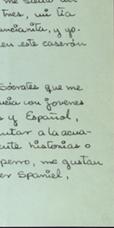 tres, mi tía
ancianita, y yo.
en este caserón
Sócrates que me
con jovenes
s y Español,
utar a la ecua-
historias o
perro, me gustan
er Spaniel,